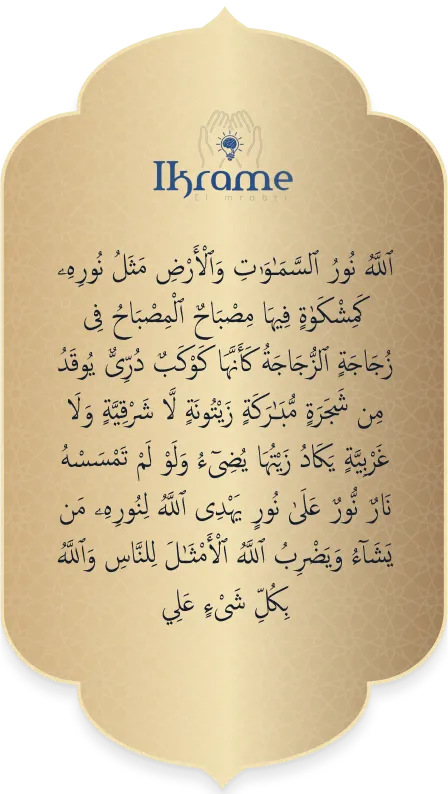 Ikrame
El mrabti
ٱللَّهُ نُورُ ٱلسَّمَـٰوَٰتِ وَٱلْأَرْضِ مَثَلُ نُورِهِۦ
كَمِشْكَوٰةٍ فِيهَا مِصْبَاحٌ ٱلْمِصْبَاحُ فِى
زُجَاجَةٍ ٱلزُّجَاجَةُ كَأَنَّهَا كَوْكَبٌ دُرِّىٌّ يُوقَدُ
مِن شَجَرَةٍ مُّبَـٰرَكَةٍ زَيْتُونَةٍ لَّا شَرْقِيَّةٍ وَلَا
غَرْبِيَّةٍ يَكَادُ زَيْتُهَا يُضِىٓءُ وَلَوْ لَمْ تَمْسَسْهُ
نَارٌ نُّورٌ عَلَىٰ نُورٍ يَهْدِى ٱللَّهُ لِنُورِهِۦ مَن
يَشَآءُ وَيَضْرِبُ ٱللَّهُ ٱلْأَمْثَـٰلَ لِلنَّاسِ وَٱللَّهُ
بِكُلِّ شَىْءٍ عَلِي